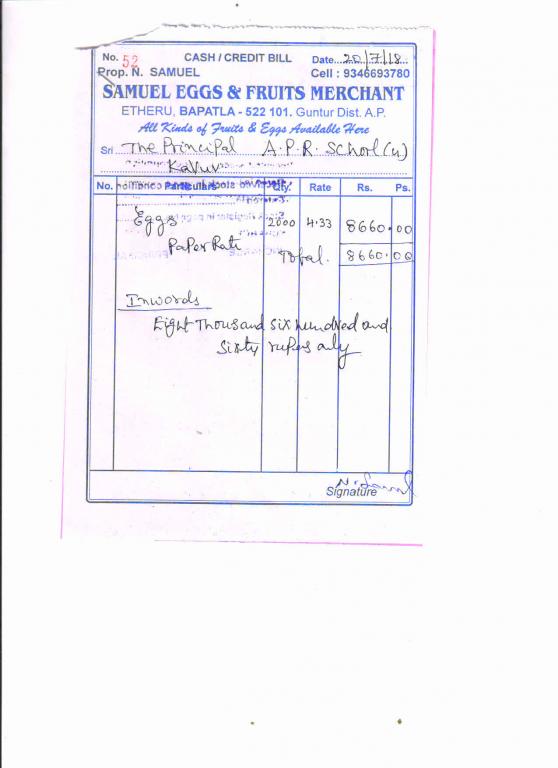 No. 52 CASH / CREDIT BILL Date...20/7/18...
Prop. N. SAMUEL Cell : 9346693780
SAMUEL EGGS & FRUITS MERCHANT
ETHERU, BAPATLA - 522 101. Guntur Dist. A.P.
All Kinds of Fruits & Eggs Available Here
Sri The Principal A.P.R. School (u)
Kavur
No. Particulars Qty. Rate Rs. Ps.
Eggs 2000 4.33 8660.00
Paper Rate Total. 8660.00
Inwords
Eight Thousand six hundred and
Sixty rupes only
Signature